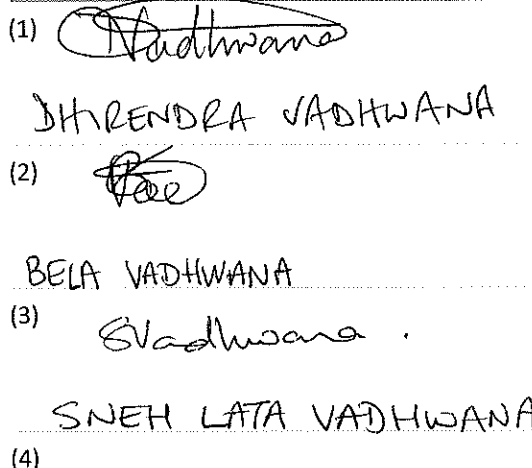 (1) Vadhwana
DHIRENDRA VADHWANA
(2)
BELA VADHWANA
(3) SVadhwana.
SNEH LATA VADHWANA
(4)